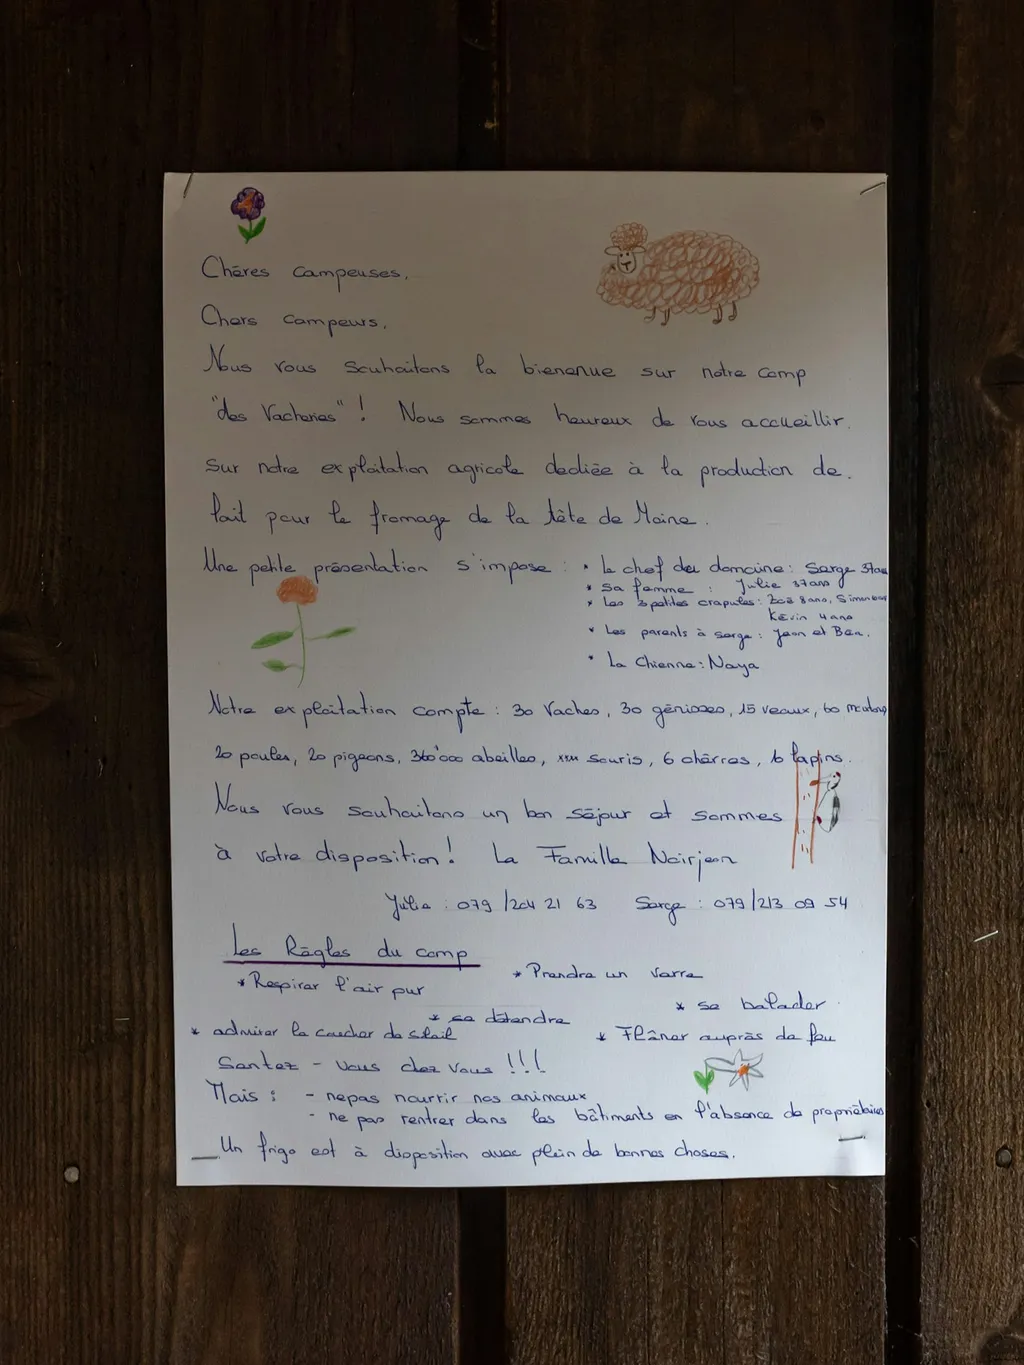 Chères Campeuses,
Chers Campeurs,
Nous vous souhaitons la bienenue sur notre camp
"des Vacheries" ! Nous sommes heureux de vous accueillir
sur notre exploitation agricole dediée à la production de
lait pour le fromage de la tête de Moine.
Une petite présentation s'impose : * Le chef du domaine : Serge 37ans
* Sa femme : Julie 37ans
* Les 3 petites crapules : Zoé 8 ans, Simon
Kévin 4 ans
* Les parents à Serge : Jean et Bea.
* La Chienne : Naya
Notre exploitation compte : 30 Vaches, 30 génisses, 15 veaux, 60 moutons
20 poules, 20 pigeons, 360'000 abeilles, xxx souris, 6 chèvres, 6 lapins.
Nous vous souhaitons un bon séjour et sommes
à votre disposition! La Famille Noirjean
Julie : 079 /204 21 63 Serge : 079 /213 09 54
Les Règles du camp
* Respirer l'air pur * Prendre un verre
* se balader
* se détendre
* admirer le coucher de soleil * Flâner auprès de feu
Sentez - vous chez vous !!!
Mais : - ne pas nourrir nos animaux
- ne pas rentrer dans les bâtiments en l'absence de propriétaires
Un frigo est à disposition avec plein de bonnes choses.